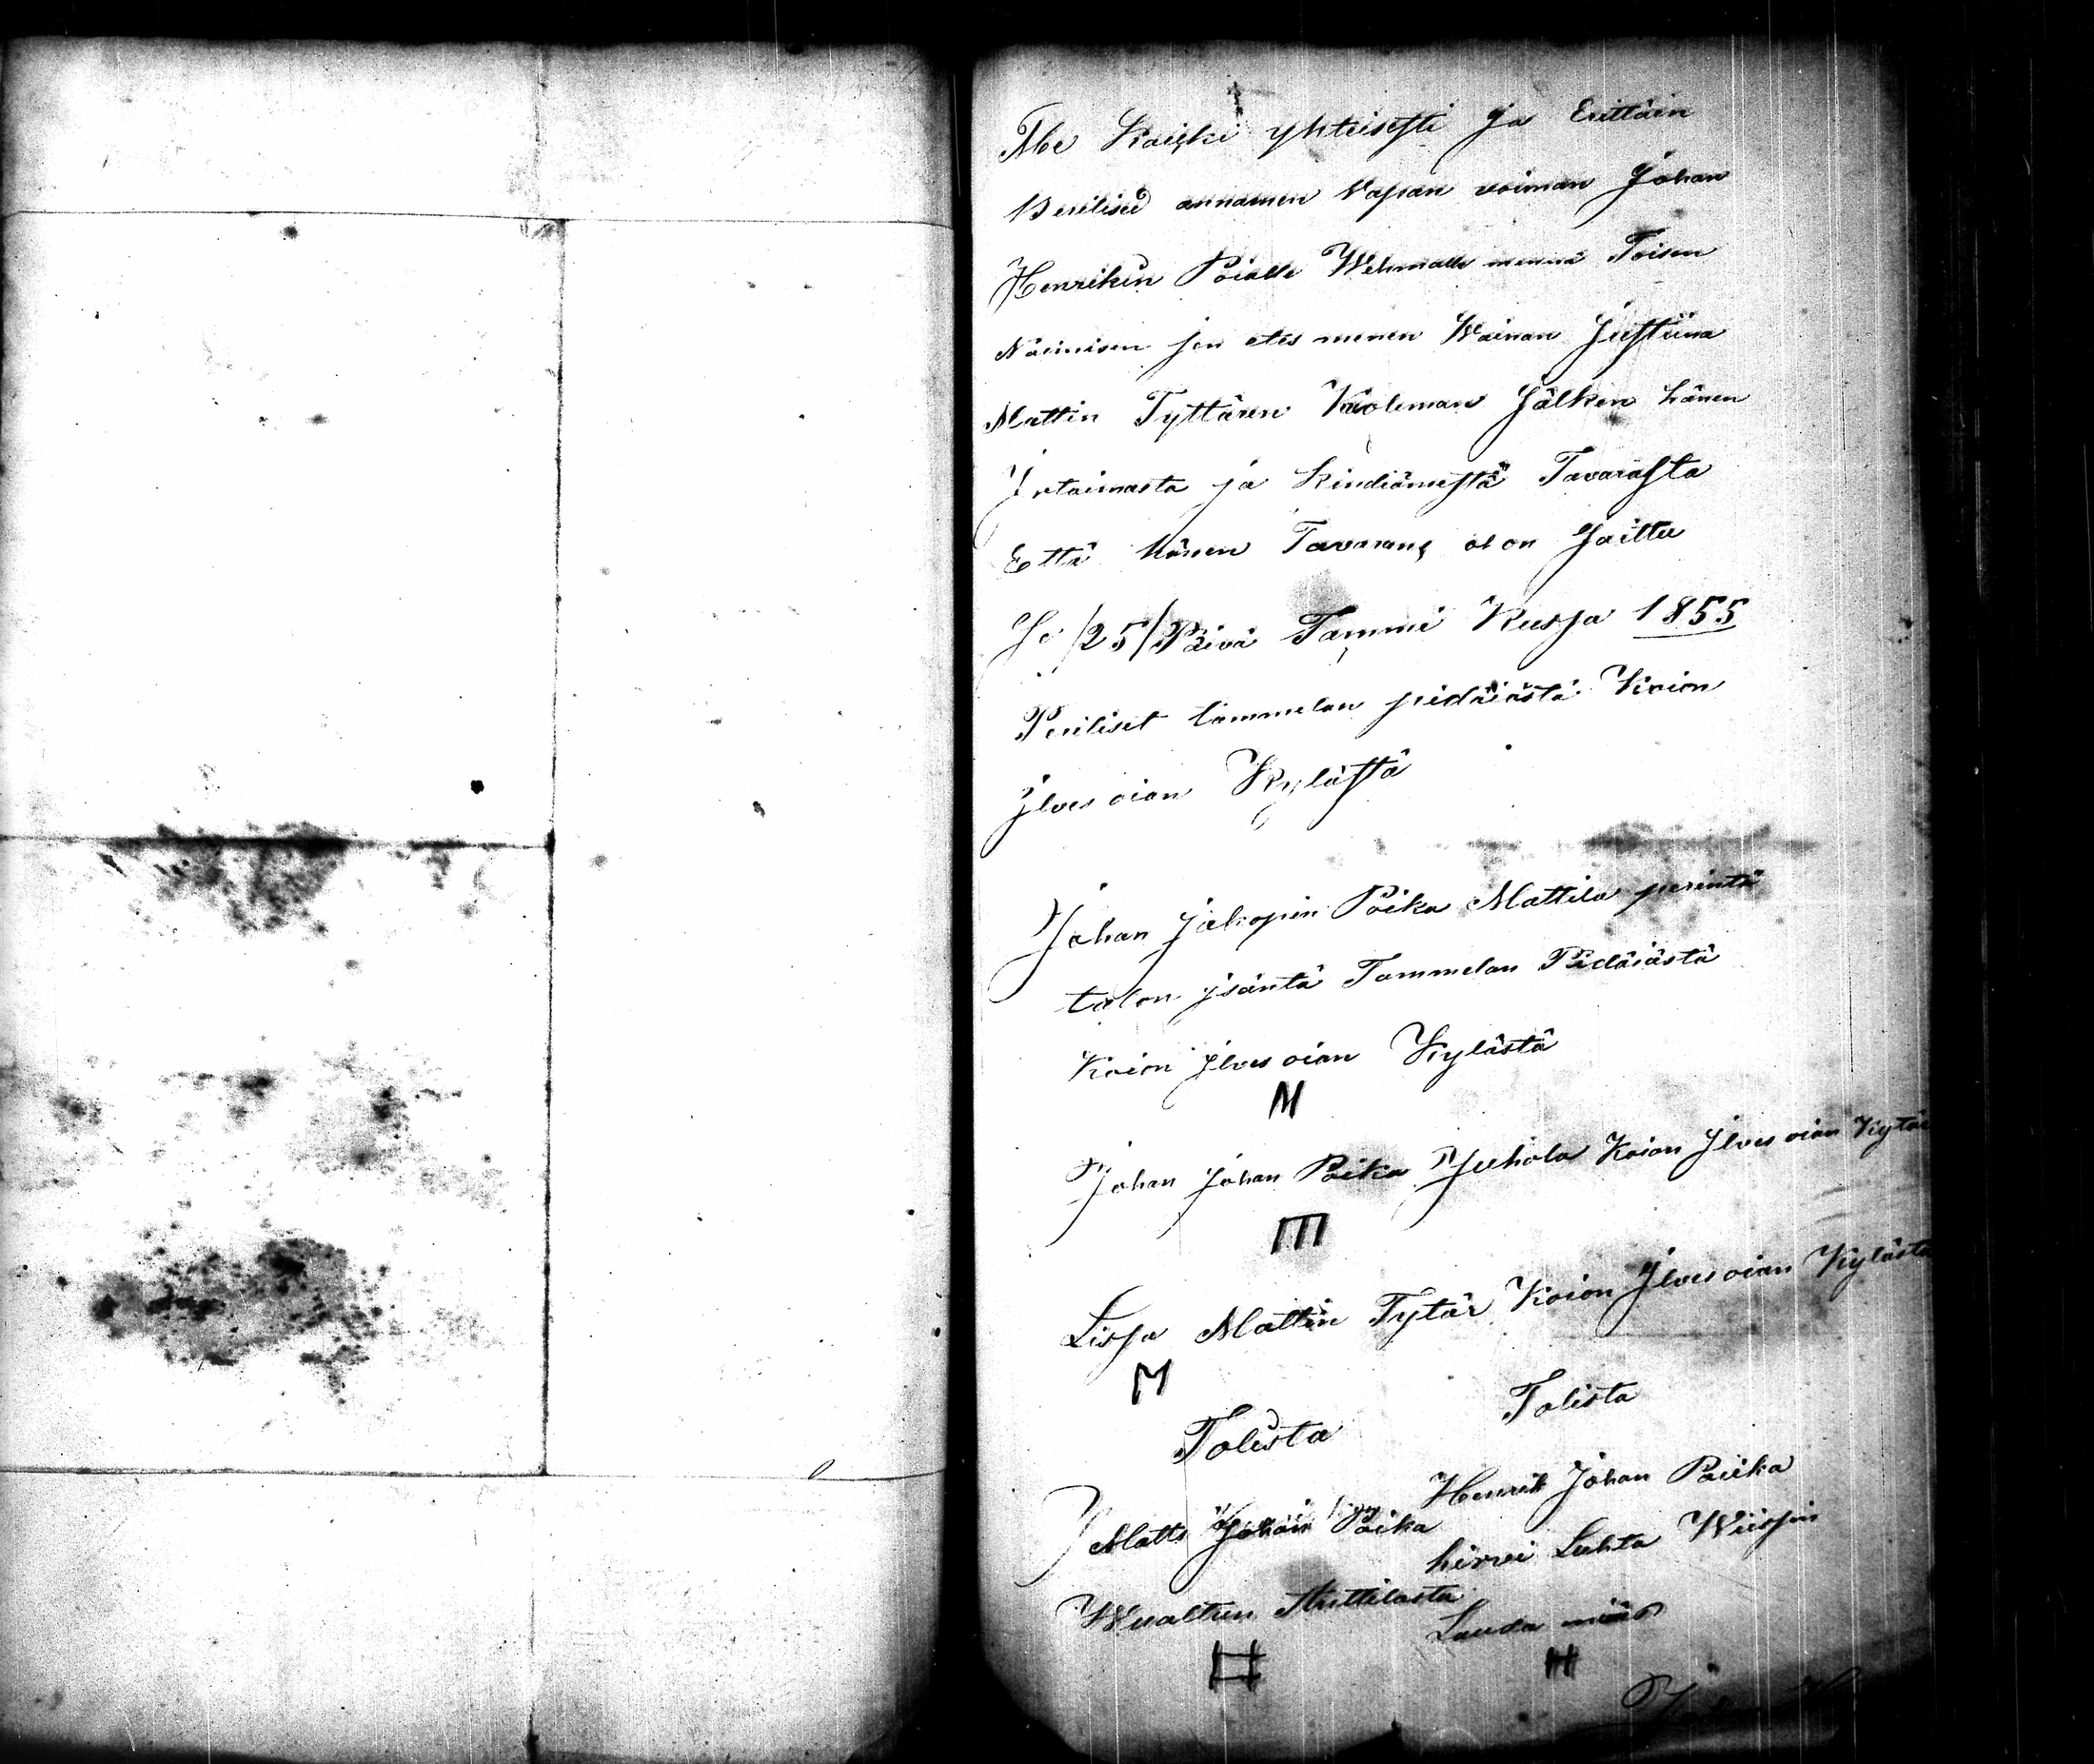 Me Kaicki yhteisesti ja Erittäin
Beriliset annamen Vapan woiman Johan
Henrikin Poialle Wehmalle mennä Toisen
Naimisen sen etes menen Wainan Justiina
Mattin Tyttären Kuoleman Jälken hänen
Irtaimasta ja Kindiämestä Tavarasta
Että hänen Tavarans ol on Jaittu
Se /25/ Päivä Tammi Kussa 1855
Periliset tammelan pidäiästä Koion
Ilves oian Kylästä
Johan Jakopin Poika Mattila perintä
talon jsäntä Tammelan Pidäiästä
Koion Ilves oian Kylästä
M
Johan Johan Poika Juhola Koion Ilves oian Kytä
III
Lissa Mattin Tytär Koion Ilves oian Kylästä
M
Tolista Tolista
Matts Johan Poika
Henrik Johan Poika
hirvi Luhta Wiispin
Huttilasta
Lauda mies
H